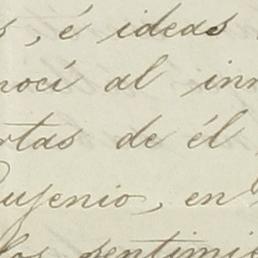 s, é ideas
nocí al inn
rtas de él
Eugenio, en
los sentimie